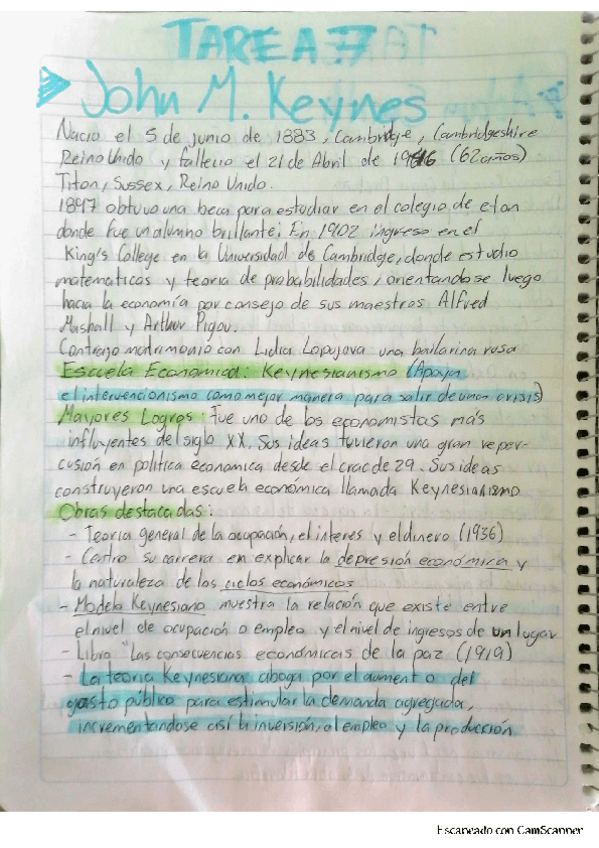 TAREA 7
John M. Keynes
Nacio el 5 de junio de 1883, Cambridge, Cambridgeshire
Reino Unido y fallecio el 21 de Abril de 1946 (62 años)
Titon, Sussex, Reino Unido.
1897 obtuvo una beca para estudiar en el colegio de etan
donde fue un alumno brillante; En 1902 ingreso en el
King's College en la Universidad de Cambridge, donde estudio
matematicas y teoria de probabilidades, orientandose luego
hacia la economía por consejo de sus maestros Alfred
Mashall y Arthur Pigou.
Contrajo matrimonio con Lidia Lopujova una bailarina rusa
Escuela Economica: Keynesianismo (Apoya
el intervencionismo como mejor manera para salir de una crisis)
Mayores Logros: Fue uno de los economistas más
influyentes del siglo XX. Sus ideas tuvieron una gran reper-
cusión en politica economica desde el crac de 29. Sus ideas
construyeron una escuela económica llamada Keynesianismo
Obras destacadas:
- Teoria general de la ocupación, el interes y el dinero (1936)
- Centro su carrera en explicar la depresión económica y
la naturaleza de los ciclos económicos
- Modelo Keynesiano muestra la relación que existe entre
el nivel de ocupación o empleo y el nivel de ingresos de un lugar
- Libro "Las consecuencias económicas de la paz (1919)
- La teoria Keynesiana aboga por el aumento del
gasto público para estimular la demanda agregada,
incrementandose asi la inversión, el empleo y la producción
Escaneado con CamScanner